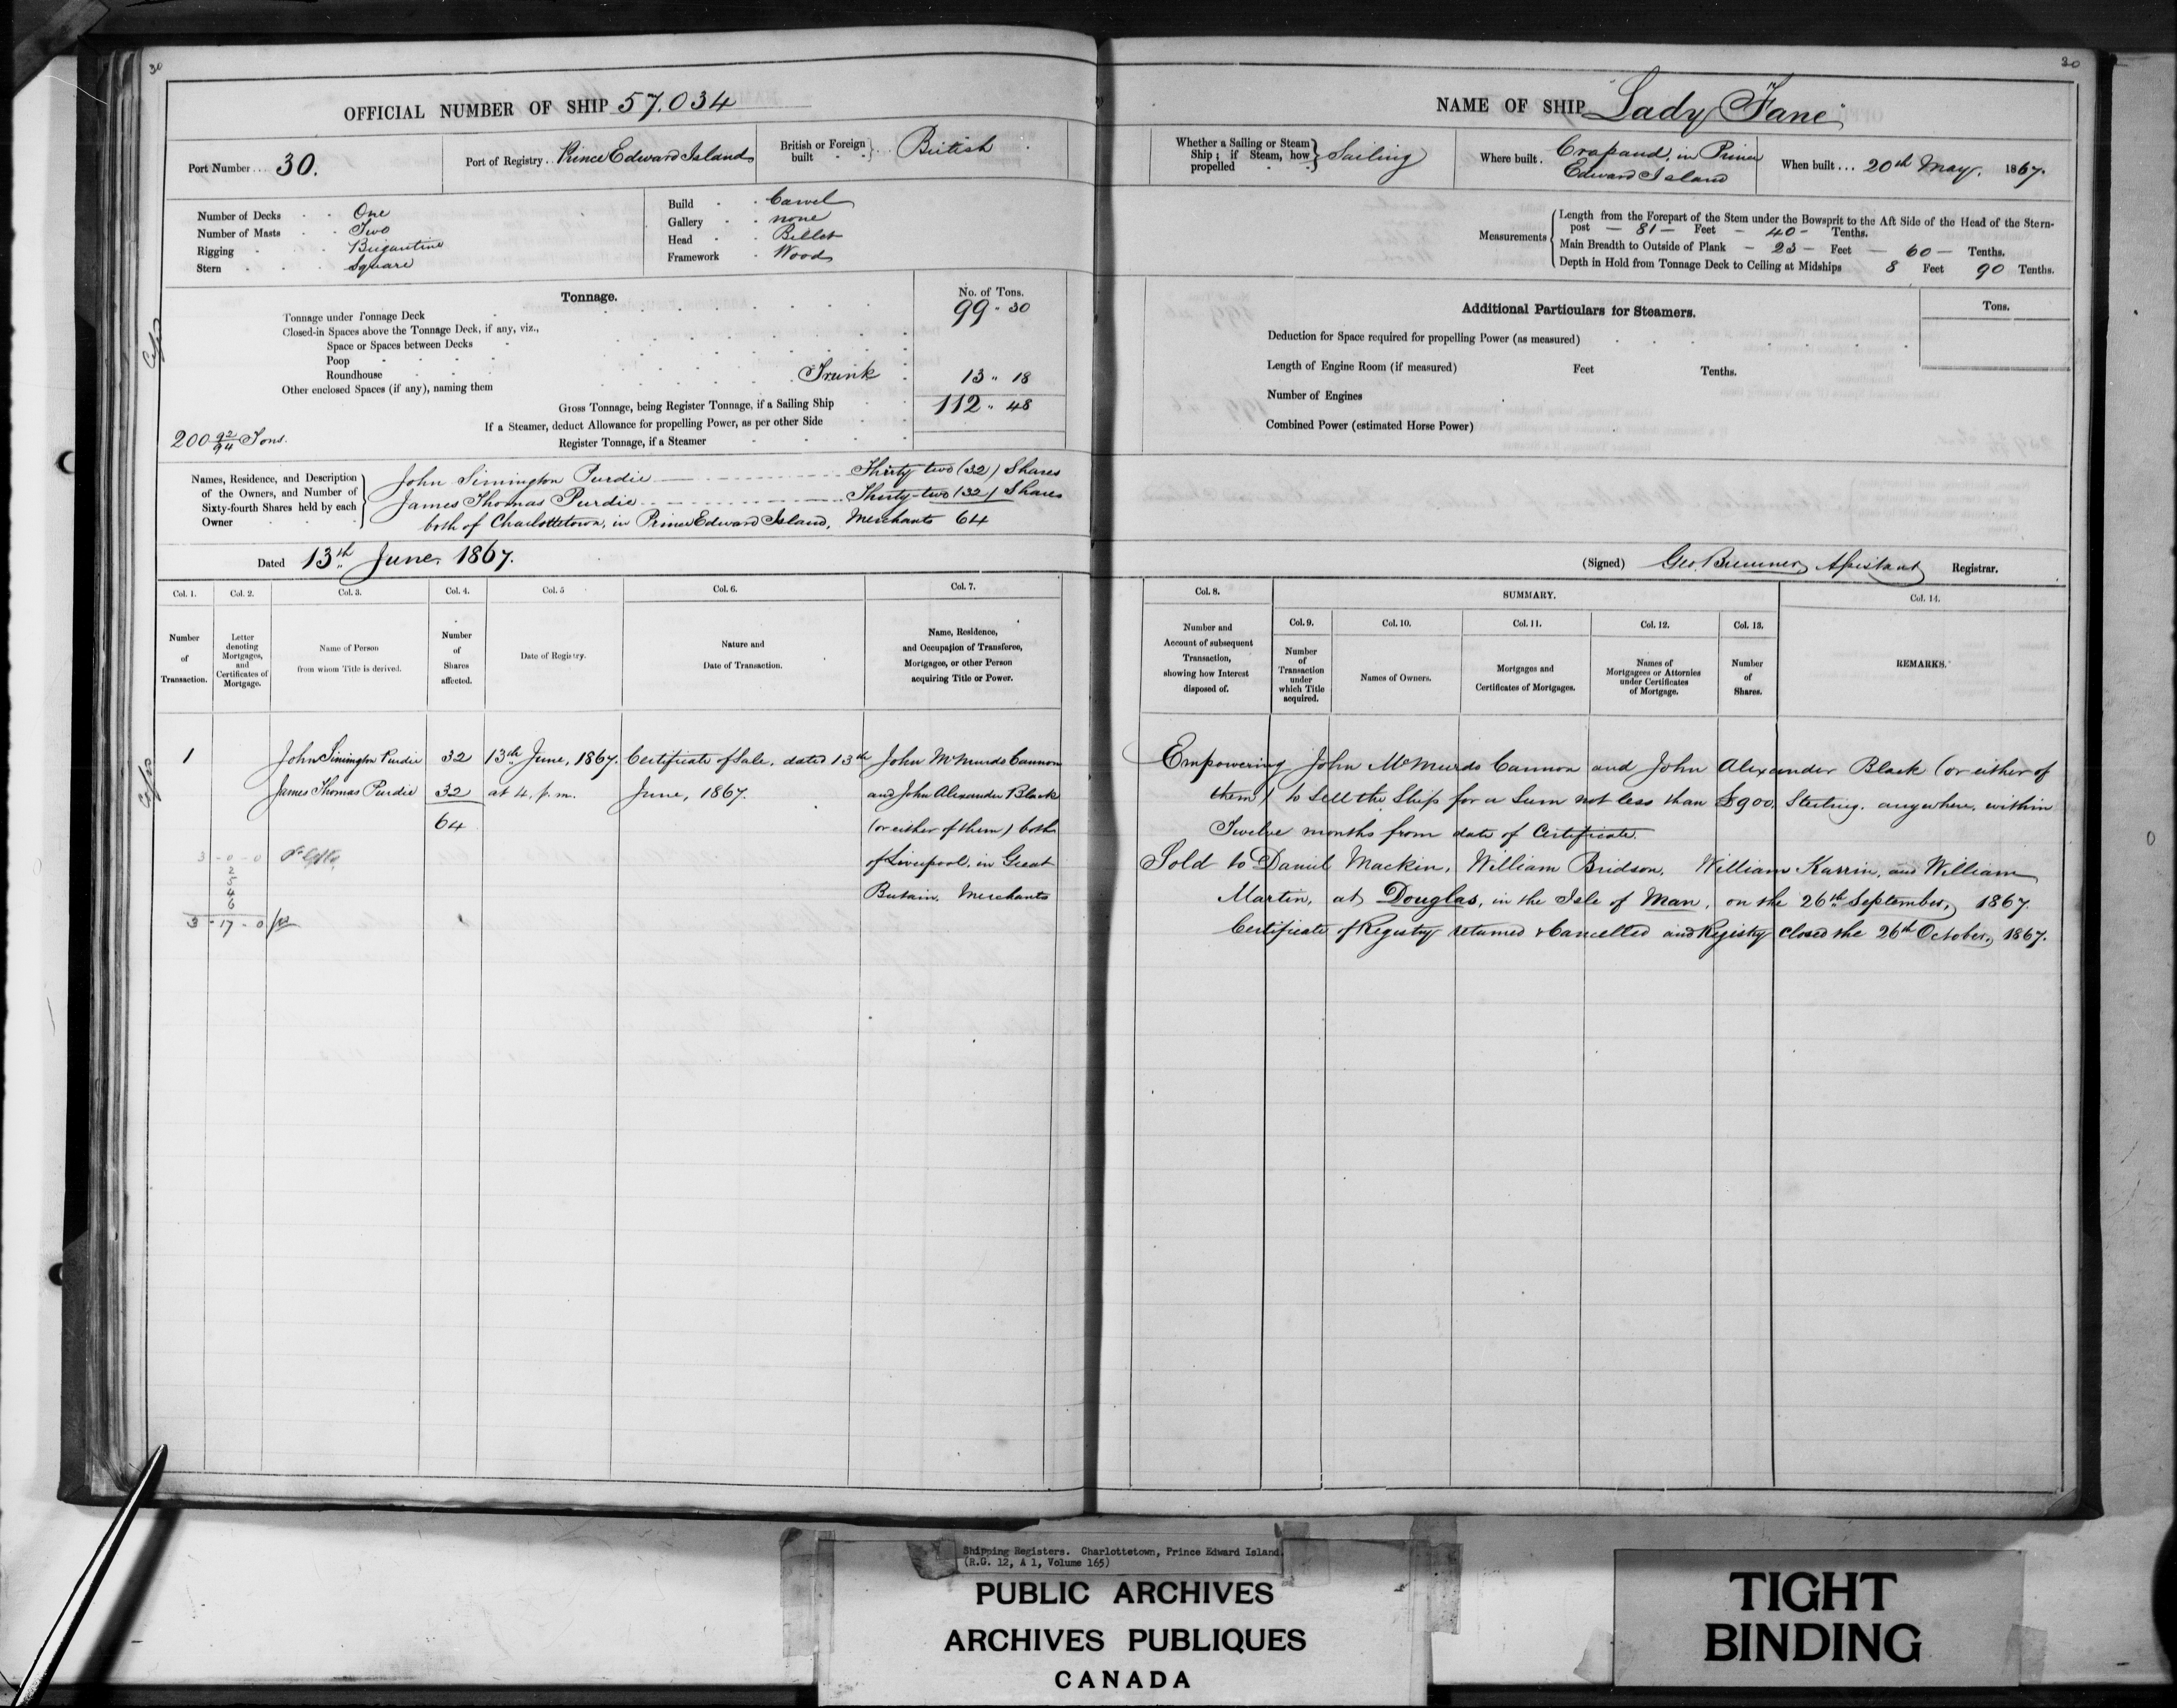 30
OFFICIAL NUMBER OF SHIP 57.034
Port Number 30.
Port of Registry Prince Edward Island
British or Foreign built British
Number of Decks One
Number of Masts Two
Rigging Brigantine
Stern Square
Build Carvel
Gallery none
Head Billet
Framework Wood
Tonnage.
No. of Tons.
Tonnage under Tonnage Deck 99 - 30
Closed-in Spaces above the Tonnage Deck, if any, viz.,
Space or Spaces between Decks
Poop
Roundhouse
Other enclosed Spaces (if any), naming them Trunk 13 " 18
Gross Tonnage, being Register Tonnage, if a Sailing Ship 112 " 48
If a Steamer, deduct Allowance for propelling Power, as per other Side
Register Tonnage, if a Steamer
200 92/94 Tons.
Names, Residence, and Description of the Owners, and Number of Sixty-fourth Shares held by each Owner
John Simington Purdie Thirty-two (32) Shares
James Thomas Purdie Thirty-two (32) Shares
both of Charlottetown, in Prince Edward Island, Merchants 64
Dated 13th June, 1867.
Col. 1. Col. 2. Col. 3. Col. 4. Col. 5 Col. 6. Col. 7.
Number of Transaction.
Letter denoting Mortgages, and Certificates of Mortgage.
Name of Person from whom Title is derived.
Number of Shares affected.
Date of Registry.
Nature and Date of Transaction.
Name, Residence, and Occupation of Transferee, Mortgagee, or other Person acquiring Title or Power.
1 John Simington Purdie 32 13th June, 1867. Certificate of Sale, dated 13th John McMurdo Cannon
James Thomas Purdie 32 at 4. p.m. June, 1867. and John Alexander Black
64 (or either of them) both
3 - 0 - 0 of Liverpool, in Great
2
5
4 Britain, Merchants
6
3 - 17 - 0
30
NAME OF SHIP "Lady Fane"
Whether a Sailing or Steam Ship; if Steam, how propelled Sailing
Where built Crapaud, in Prince Edward Island
When built 20th May. 1867.
Measurements
Length from the Forepart of the Stem under the Bowsprit to the Aft Side of the Head of the Stern-
post - 81 - Feet - 40 - Tenths.
Main Breadth to Outside of Plank - 23 - Feet - 60 - Tenths.
Depth in Hold from Tonnage Deck to Ceiling at Midships 8 Feet 90 Tenths.
Additional Particulars for Steamers.
Tons.
Deduction for Space required for propelling Power (as measured)
Length of Engine Room (if measured) Feet Tenths.
Number of Engines
Combined Power (estimated Horse Power)
(Signed) Geo. Bremner, Assistant Registrar.
Col. 8.
SUMMARY.
Col. 9. Col. 10. Col. 11. Col. 12. Col. 13.
Col. 14.
Number and Account of subsequent Transaction, showing how Interest disposed of.
Number of Transaction under which Title acquired.
Names of Owners.
Mortgages and Certificates of Mortgages.
Names of Mortgagees or Attornies under Certificates of Mortgage.
Number of Shares.
REMARKS.
Empowering John McMurdo Cannon and John Alexander Black (or either of
them) to Sell the Ship for a Sum not less than £900. Sterling. anywhere, within
Twelve months from date of Certificate.
Sold to Daniel Mackin, William Bridson, William Karrin, and William
Martin, at Douglas, in the Isle of Man, on the 26th September, 1867.
Certificate of Registry returned & Cancelled and Registry Closed the 26th October, 1867.
Shipping Registers. Charlottetown, Prince Edward Island.
(R.G. 12, A 1, Volume 165)
PUBLIC ARCHIVES
ARCHIVES PUBLIQUES
CANADA
TIGHT
BINDING